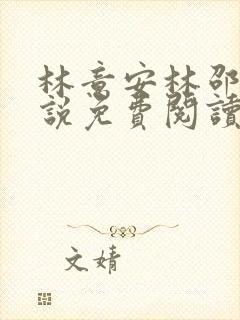 林意安林邵
說免費閱讀
文婧